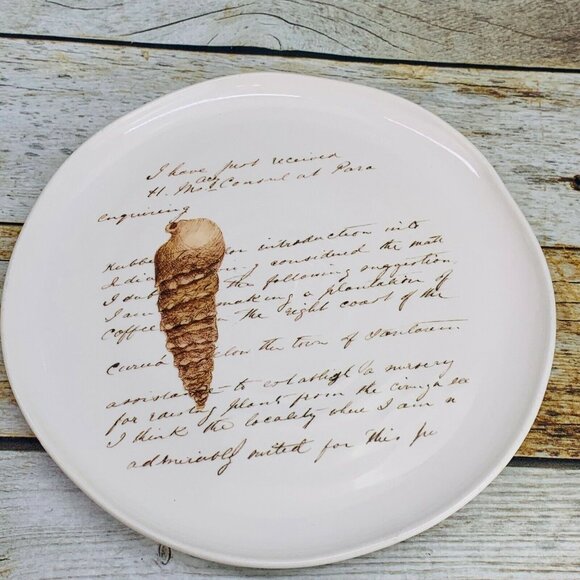 I have just received
H. Mas Consul at Para
enquiring
Rubber introduction into
I d considered the matt
I d the following suggestion
I am making a plantation of
coffee the right coast of the
Curuá below the town of Santarem
assistance to establish a nursery
for raising plants from the
I think the locality where I am
admirably suited for this